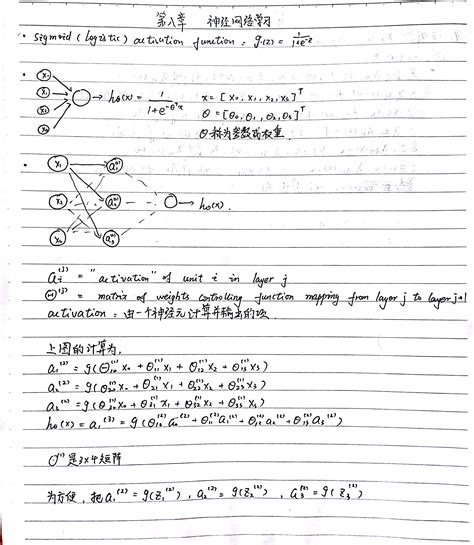 第八章 神经网络学习
· Sigmoid (logistic) activation function: g(z) = 1/(1+e^-z)
x₀
x₁
x₂
x₃
→ hθ(x) = 1/(1+e^(-θᵀx)) x = [x₀, x₁, x₂, x₃]ᵀ
θ = [θ₀, θ₁, θ₂, θ₃]ᵀ
θ 称为参数或权重
x₁ a₁⁽²⁾
x₂ a₂⁽²⁾ → hθ(x).
x₃ a₃⁽²⁾
aᵢ⁽ʲ⁾ = "activation" of unit i in layer j
Θ⁽ʲ⁾ = matrix of weights controlling function mapping from layer j to layer j+1
activation: 由一个神经元计算并输出的项
上图的计算为,
a₁⁽²⁾ = g(Θ₁₀⁽¹⁾x₀ + Θ₁₁⁽¹⁾x₁ + Θ₁₂⁽¹⁾x₂ + Θ₁₃⁽¹⁾x₃)
a₂⁽²⁾ = g(Θ₂₀⁽¹⁾x₀ + Θ₂₁⁽¹⁾x₁ + Θ₂₂⁽¹⁾x₂ + Θ₂₃⁽¹⁾x₃)
a₃⁽²⁾ = g(Θ₃₀⁽¹⁾x₀ + Θ₃₁⁽¹⁾x₁ + Θ₃₂⁽¹⁾x₂ + Θ₃₃⁽¹⁾x₃)
hθ(x) = a₁⁽³⁾ = g(Θ₁₀⁽²⁾a₀⁽²⁾ + Θ₁₁⁽²⁾a₁⁽²⁾ + Θ₁₂⁽²⁾a₂⁽²⁾ + Θ₁₃⁽²⁾a₃⁽²⁾)
Θ⁽¹⁾ 是3×4矩阵
为方便, 把a₁⁽²⁾ = g(z₁⁽²⁾), a₂⁽²⁾ = g(z₂⁽²⁾), a₃⁽²⁾ = g(z₃⁽²⁾)